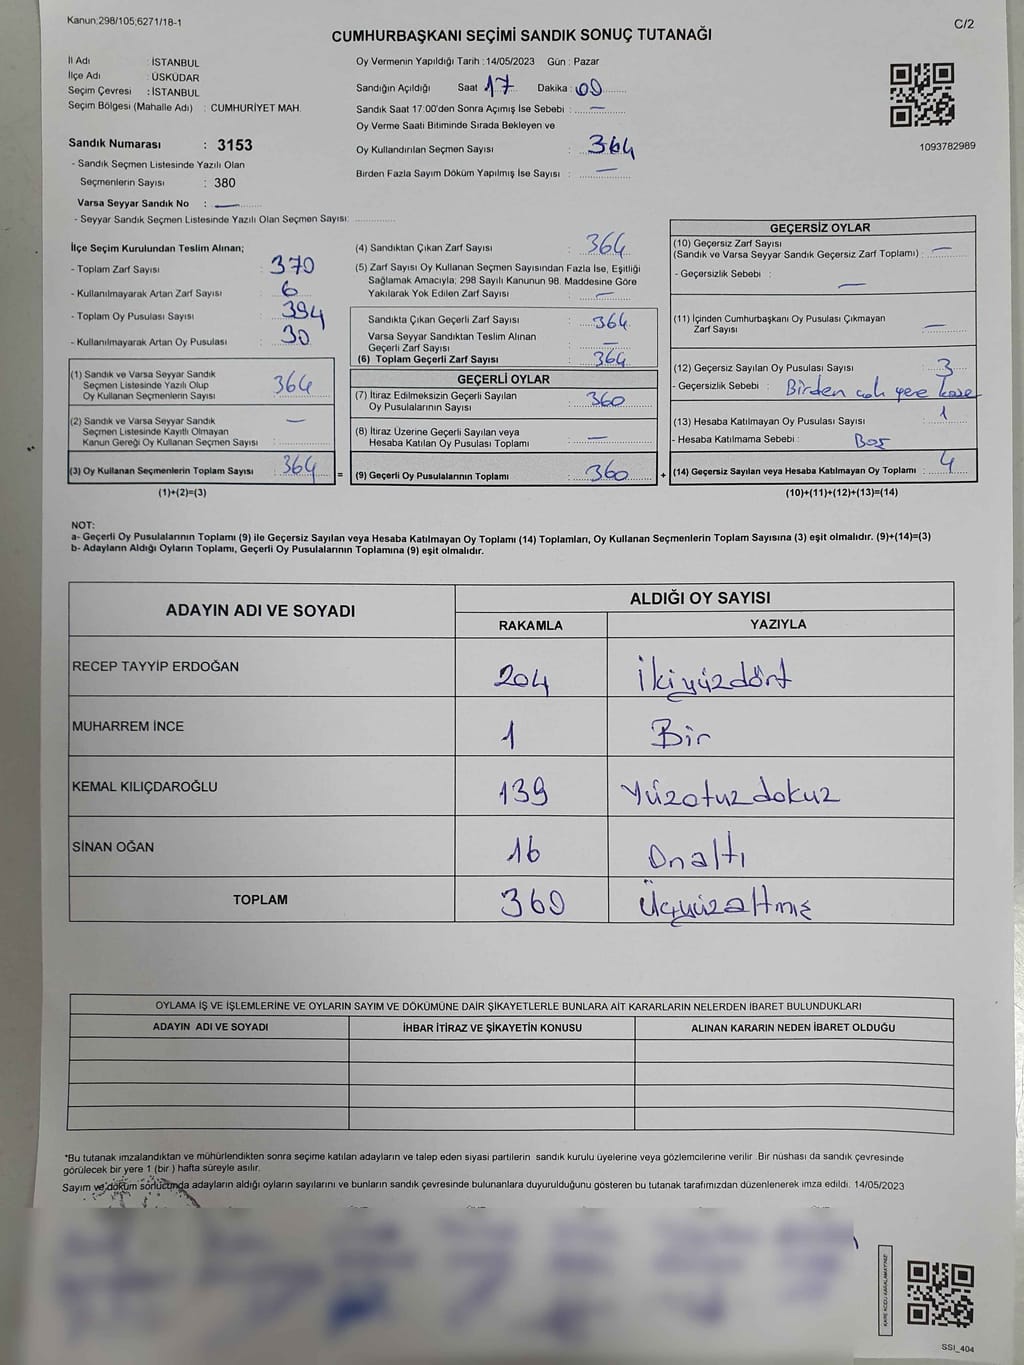 Kanun:298/105,6271/18-1
C/2
CUMHURBAŞKANI SEÇİMİ SANDIK SONUÇ TUTANAĞI
İl Adı : İSTANBUL
İlçe Adı : ÜSKÜDAR
Seçim Çevresi : İSTANBUL
Seçim Bölgesi (Mahalle Adı) : CUMHURİYET MAH.
Sandık Numarası : 3153
- Sandık Seçmen Listesinde Yazılı Olan
Seçmenlerin Sayısı : 380
Varsa Seyyar Sandık No : —
- Seyyar Sandık Seçmen Listesinde Yazılı Olan Seçmen Sayısı:
Oy Vermenin Yapıldığı Tarih : 14/05/2023 Gün : Pazar
Sandığın Açıldığı Saat 17 Dakika : 00
Sandık Saat 17:00'den Sonra Açımış İse Sebebi : —
Oy Verme Saati Bitiminde Sırada Bekleyen ve
Oy Kullandırılan Seçmen Sayısı : 364
Birden Fazla Sayım Döküm Yapılmış İse Sayısı : —
1093782989
İlçe Seçim Kurulundan Teslim Alınan;
- Toplam Zarf Sayısı : 370
- Kullanılmayarak Artan Zarf Sayısı : 6
- Toplam Oy Pusulası Sayısı : 394
- Kullanılmayarak Artan Oy Pusulası : 30
(1) Sandık ve Varsa Seyyar Sandık
Seçmen Listesinde Yazılı Olup
Oy Kullanan Seçmenlerin Sayısı : 364
(2) Sandık ve Varsa Seyyar Sandık
Seçmen Listesinde Kayıtlı Olmayan
Kanun Gereği Oy Kullanan Seçmen Sayısı : —
(3) Oy Kullanan Seçmenlerin Toplam Sayısı : 364
(1)+(2)=(3)
=
(4) Sandıktan Çıkan Zarf Sayısı : 364
(5) Zarf Sayısı Oy Kullanan Seçmen Sayısından Fazla İse, Eşitliği
Sağlamak Amacıyla; 298 Sayılı Kanunun 98. Maddesine Göre
Yakılarak Yok Edilen Zarf Sayısı : —
Sandıkta Çıkan Geçerli Zarf Sayısı : 364
Varsa Seyyar Sandıktan Teslim Alınan
Geçerli Zarf Sayısı : —
(6) Toplam Geçerli Zarf Sayısı : 364
GEÇERLİ OYLAR
(7) İtiraz Edilmeksizin Geçerli Sayılan
Oy Pusulalarının Sayısı : 360
(8) İtiraz Üzerine Geçerli Sayılan veya
Hesaba Katılan Oy Pusulası Toplamı : —
(9) Geçerli Oy Pusulalarının Toplamı : 360
+
GEÇERSİZ OYLAR
(10) Geçersiz Zarf Sayısı
(Sandık ve Varsa Seyyar Sandık Geçersiz Zarf Toplamı) : —
- Geçersizlik Sebebi : —
(11) İçinden Cumhurbaşkanı Oy Pusulası Çıkmayan
Zarf Sayısı : —
(12) Geçersiz Sayılan Oy Pusulası Sayısı : 3
- Geçersizlik Sebebi : Birden çok yere kaşe
(13) Hesaba Katılmayan Oy Pusulası Sayısı : 1
- Hesaba Katılmama Sebebi : Boş
(14) Geçersiz Sayılan veya Hesaba Katılmayan Oy Toplamı : 4
(10)+(11)+(12)+(13)=(14)
NOT:
a- Geçerli Oy Pusulalarının Toplamı (9) ile Geçersiz Sayılan veya Hesaba Katılmayan Oy Toplamı (14) Toplamları, Oy Kullanan Seçmenlerin Toplam Sayısına (3) eşit olmalıdır. (9)+(14)=(3)
b- Adayların Aldığı Oyların Toplamı, Geçerli Oy Pusulalarının Toplamına (9) eşit olmalıdır.
ADAYIN ADI VE SOYADI
ALDIĞI OY SAYISI
RAKAMLA YAZIYLA
RECEP TAYYİP ERDOĞAN 204 İkiyüzdört
MUHARREM İNCE 1 Bir
KEMAL KILIÇDAROĞLU 139 Yüzotuzdokuz
SİNAN OĞAN 16 Onaltı
TOPLAM 360 Üçyüzaltmış
OYLAMA İŞ VE İŞLEMLERİNE VE OYLARIN SAYIM VE DÖKÜMÜNE DAİR ŞİKAYETLERLE BUNLARA AİT KARARLARIN NELERDEN İBARET BULUNDUKLARI
ADAYIN ADI VE SOYADI İHBAR İTİRAZ VE ŞİKAYETİN KONUSU ALINAN KARARIN NEDEN İBARET OLDUĞU
*Bu tutanak imzalandıktan ve mühürlendikten sonra seçime katılan adayların ve talep eden siyasi partilerin sandık kurulu üyelerine veya gözlemcilerine verilir. Bir nüshası da sandık çevresinde
görülecek bir yere 1 (bir ) hafta süreyle asılır.
Sayım ve döküm sonucunda adayların aldığı oyların sayılarını ve bunların sandık çevresinde bulunanlara duyurulduğunu gösteren bu tutanak tarafımızdan düzenlenerek imza edildi. 14/05/2023
KARE KODU KARALAMAYINIZ
SSI_404